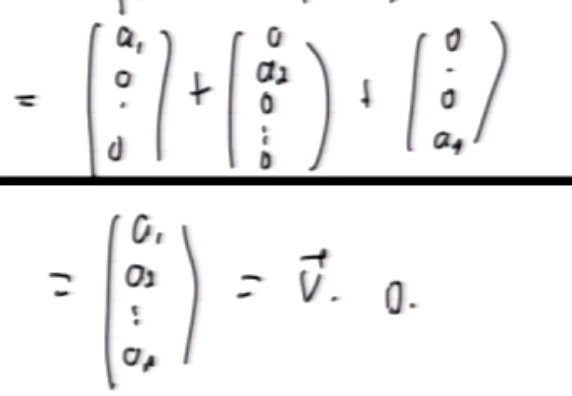 = (a₁ 0 . 0) + (0 a₂ 0 ⋮ 0) + (0 . 0 a₄)
= (a₁ a₂ ⋮ aₙ) = v⃗. 0.